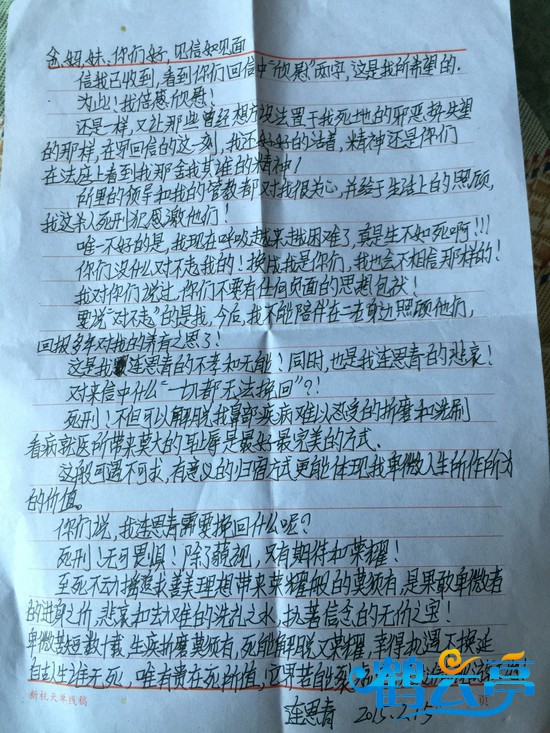 爸、妈、妹、你们好,见信如见面
信我已收到,看到你们回信中"欣慰"两字,这是我所希望的.
为此!我倍感欣慰!
还是一样,又让那些曾经想方设法置于我死地的邪恶势力失望
的那样,在写回信的这一刻,我还好好的活着,精神还是你们
在法庭上看到我那舍我其谁的精神!
所里的领导和我的管教都对我很关心,并给于生活上的照顾,
我这杀人死刑犯感激他们!
唯一不好的是,我现在呼吸越来越困难了,真是生不如死啊!!!
你们没什么对不起我的!换成我是你们,我也会不相信那样的!
我对你们说过,你们不要有任何负面的思想包袱!
要说"对不起"的是我,今后,我不能陪伴在二老身边照顾他们,
回报多年对我的养育之恩了!
这是我连恩青的不孝和无能!同时,也是我连恩青的悲哀!
对来信中什么"一切都无法挽回"?!
死刑!不但可以解脱我鼻部疾病难以忍受的折磨和洗刷
看病就医所带来莫大的耻辱是最好最完美的方式.
这般可遇不可求,有意义的归宿方式更能体现我卑微人生所作所为
的价值。
你们说,我连恩青需要挽回什么呢?
死刑!无可畏惧!除了藐视,只有期待和荣耀!
至死不动摇追求善美理想带来荣耀般的莫须有,是果敢卑微者
的进身之价,悲哀和去处难的洗礼之水,执著信念的无价之宝!
卑微苦短数十载,生疾折磨莫须有,死能解脱又荣耀,幸得机遇不换延
自古人生谁无死,唯有贵在死所值,
连恩青 2015.2.15
新杭天珠线稿
页
鹤云亭